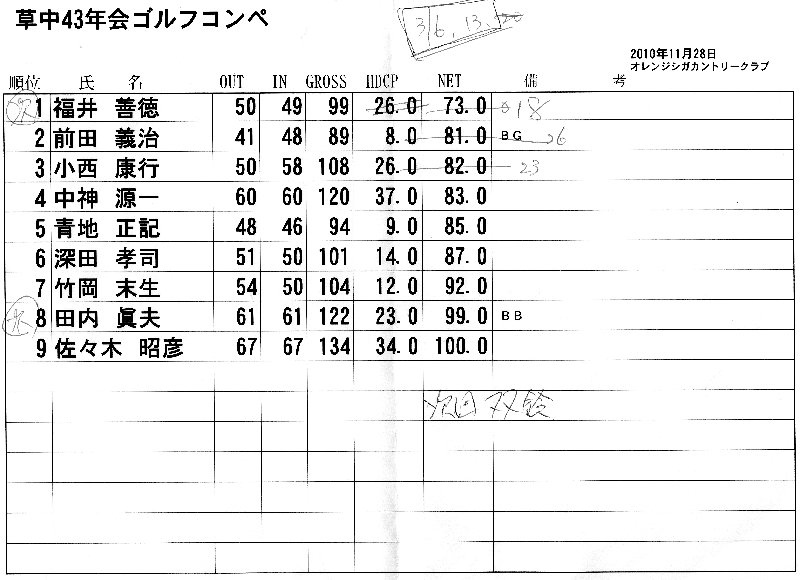 草中43年会ゴルフコンペ
3/6, 13, 20
2010年11月28日
オレンジシガカントリークラブ
順位 氏 名 OUT IN GROSS HDCP NET 備 考
1 福井 善徳 50 49 99 26.0 73.0 18
2 前田 義治 41 48 89 8.0 81.0 BG 26
3 小西 康行 50 58 108 26.0 82.0 23
4 中神 源一 60 60 120 37.0 83.0
5 青地 正記 48 46 94 9.0 85.0
6 深田 孝司 51 50 101 14.0 87.0
7 竹岡 末生 54 50 104 12.0 92.0
8 田内 眞夫 61 61 122 23.0 99.0 BB
9 佐々木 昭彦 67 67 134 34.0 100.0
次回 双鈴